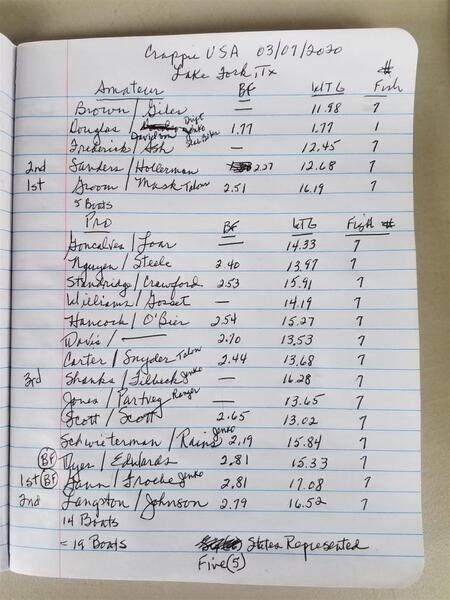 Crappie USA 03/07/2020
Lake Fork, Tx
Amateur BF WTG # Fish
Brown / Giles — 11.98 7
Douglas / Davidson Drift Jenko 1.77 1.77 1
Frederick / Ash — 12.45 7
2nd Sanders / Hollerman 2.27 12.68 7
1st Groom / Mask Talon 2.51 16.19 7
5 Boats
Pro BF WTG Fish #
Goncalves / Loar — 14.33 7
Nguyen / Steele 2.40 13.97 7
Standridge / Crawford 2.53 15.91 7
Williams / Gosset — 14.19 7
Hancock / O'Bier 2.54 15.27 7
Davis / — 2.70 13.53 7
Carter / Snyder Talon 2.44 13.68 7
3rd Shanks / Jenko — 16.28 7
Jones / Partveg Ranger — 13.65 7
Scott / Scott 2.65 13.02 7
Schwisterman / Rains Jenko 2.19 15.84 7
BF Dyer / Edwards 2.81 15.33 7
1st BF Jenko 2.81 17.08 7
2nd Langston / Johnson 2.79 16.52 7
14 Boats
= 19 Boats States Represented
Five (5)